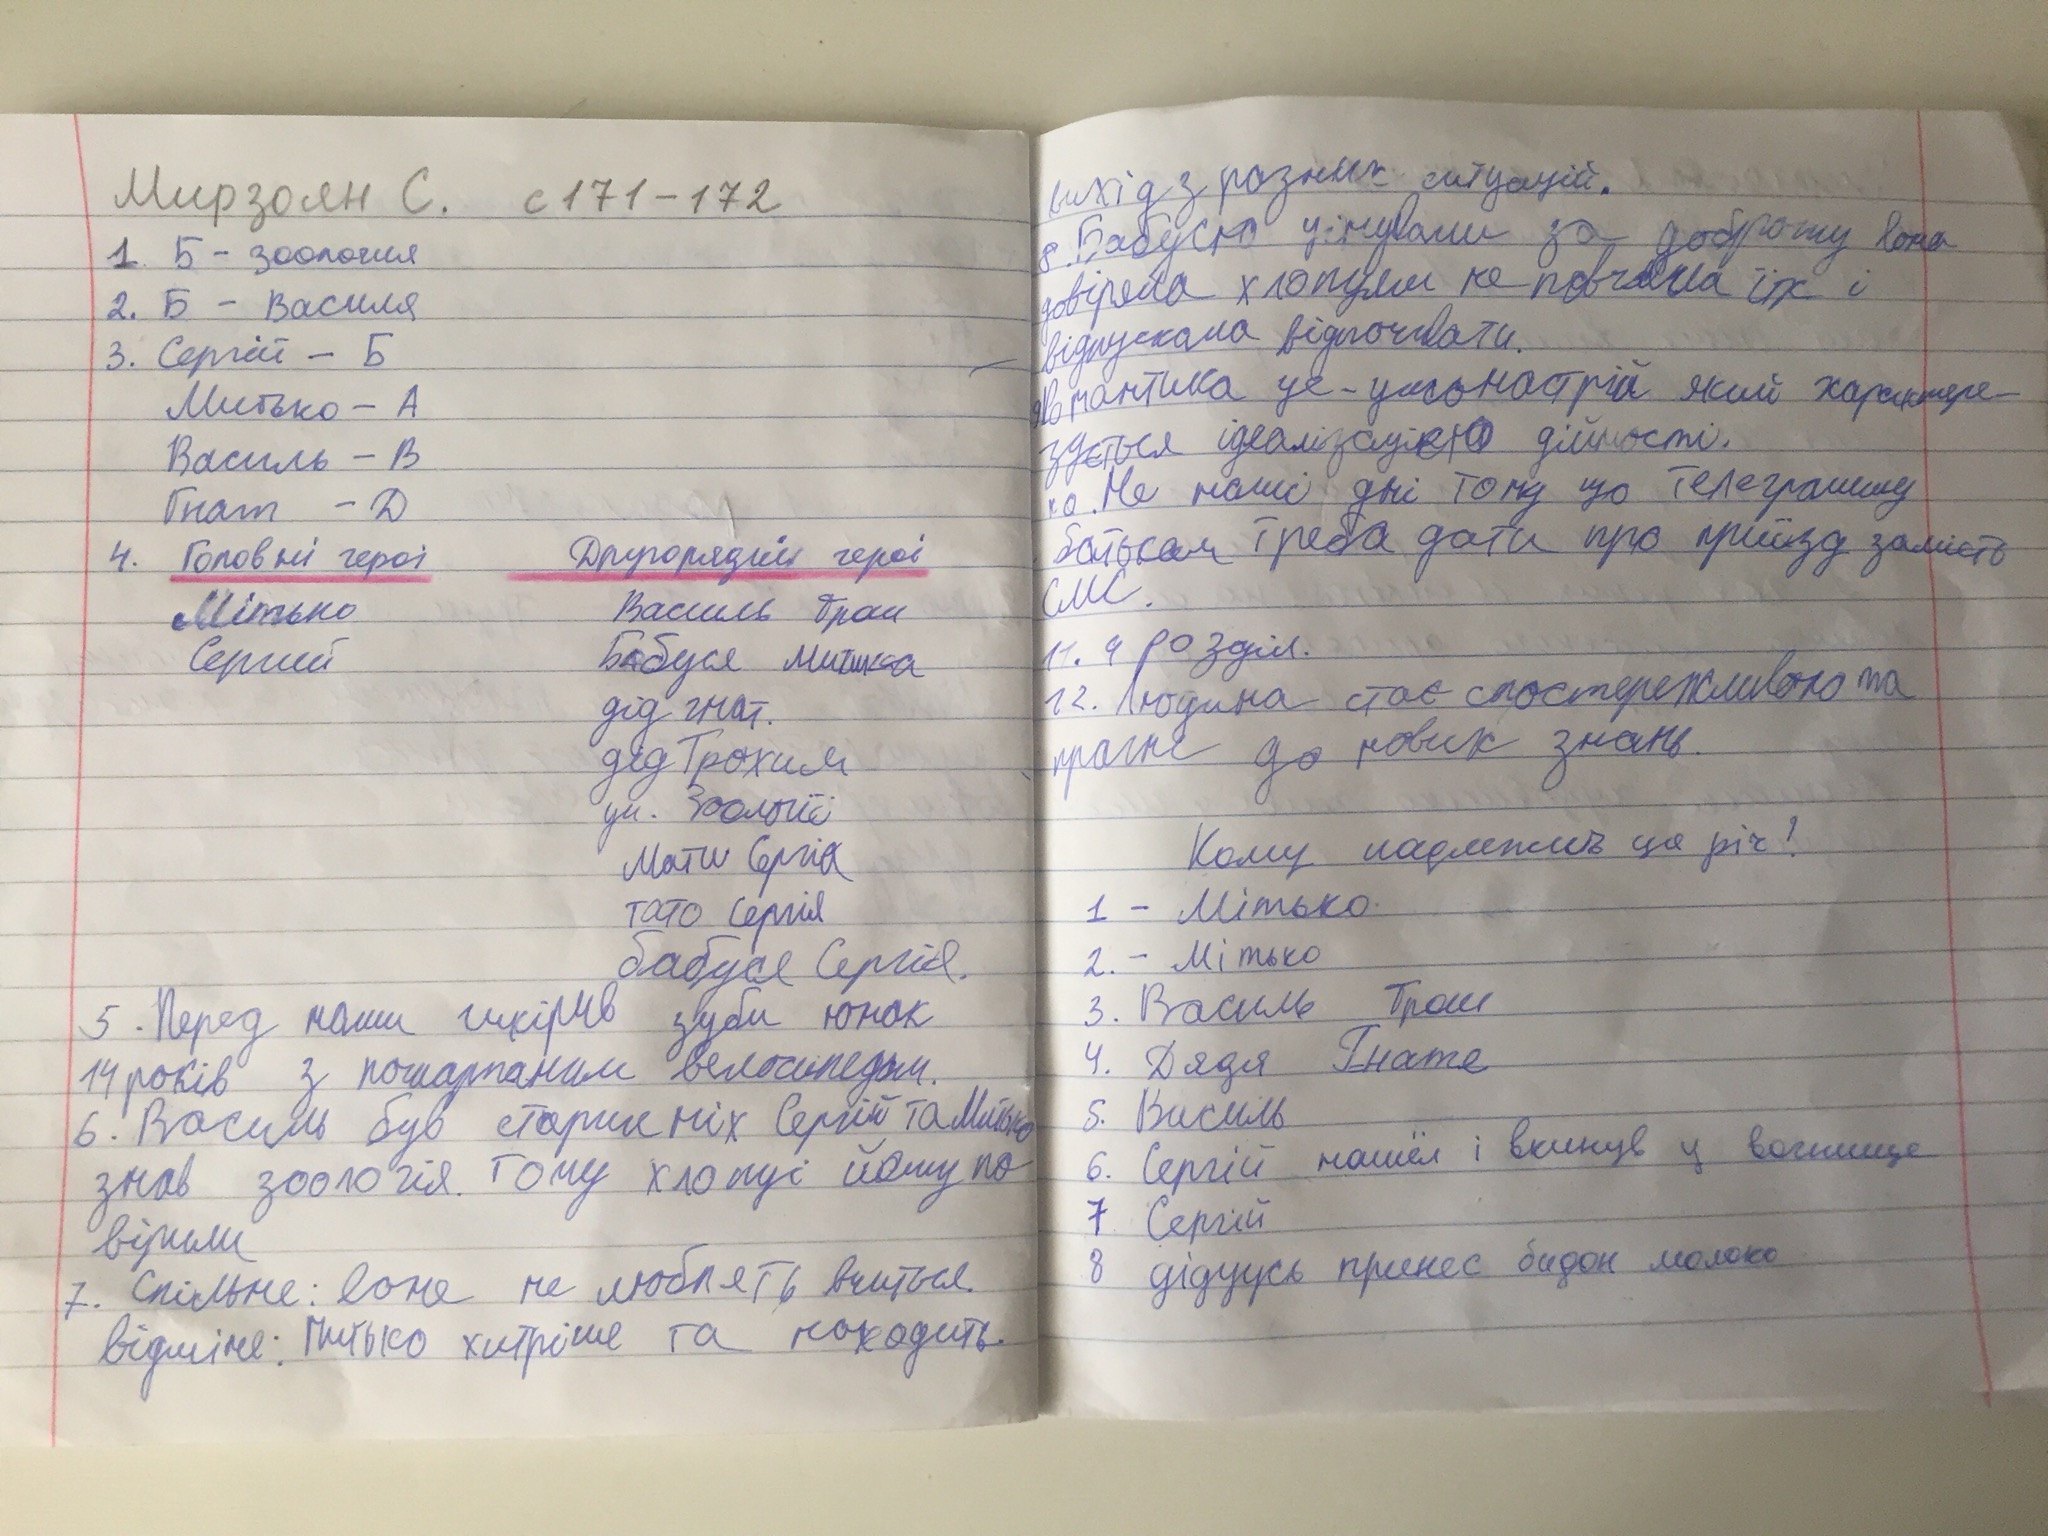 Мирзоян С. с 171-172
1. Б - зоологія
2. Б - Василя
3. Сергій - Б
Митько - А
Василь - В
Гнат - Д
4. Головні герої Другорядні герої
Мітько Василь Трош
Сергий Бабуся Митька
дід гнат.
дед Трохим
уч. Зоології
Мати Сергія
тато Сергія
бабуся Сергія.
5. Перед нами шкірив зуби юнак
14 років з пошарпаним велосипедом.
6. Василь був старше ніх Сергій та Митько
знав зоологія. Тому хлопці йому по
вірили
7. Спільне: воне не люблять вчиться.
відміне: Митько хитріше та находить.
вихід з розных ситуацій.
8. Бабусю цінували за доброту вона
довіряла хлопцям не повчала їх і
відпускала відпочивати.
9. романтика це - умонастрій який характере-
здється ідеалізацією дійності.
10. Не наші дні тому що телеграмму
батькам треба дати про приїзд замість
СМС.
11. 4 розділ.
12. Людина стає спостережливою та
прагне до новых знань.
Кому надлежить ця річ?
1 - Мітько.
2. - Мітько
3. Василь Трош
4. Дядя Гнате
5. Василь
6. Сергій нашёл і вкинув у вогнище
7 Сергій
8 дідуусь принес бидон молоко